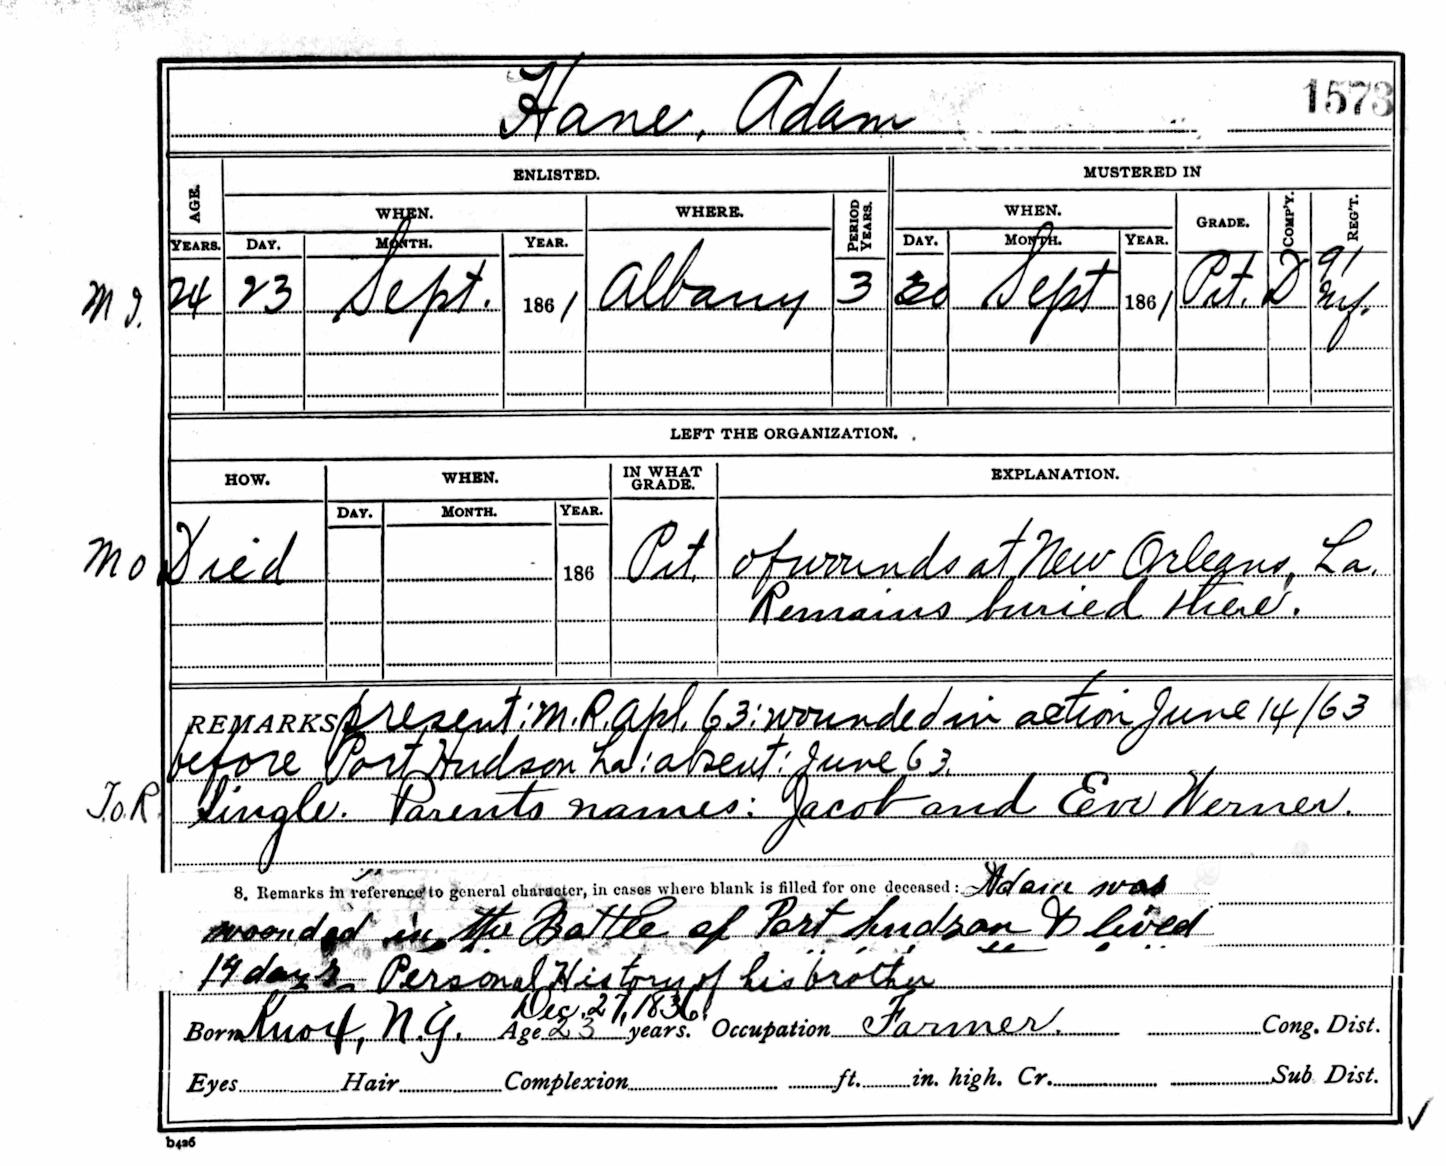 Hane, Adam 1573
ENLISTED. MUSTERED IN
AGE. WHEN. WHERE. PERIOD YEARS. WHEN. GRADE. COMP'Y. REG'T.
YEARS. DAY. MONTH. YEAR. DAY. MONTH. YEAR.
M I. 24 23 Sept. 1861 Albany 3 30 Sept 1861 Pvt. D 91
Inf.
LEFT THE ORGANIZATION.
HOW. WHEN. IN WHAT GRADE. EXPLANATION.
DAY. MONTH. YEAR.
M O Died 186 Pvt. of wounds at New Orleans, La.
Remains buried there.
REMARKS present: M.R. Apl. 63: wounded in action June 14/63
before Port Hudson La: absent: June 63.
T.o.R. Single. Parents names: Jacob and Eve Werner.
8. Remarks in reference to general character, in cases where blank is filled for one deceased: Adam was
wounded in the Battle of Port hudson & lived
19 days Personal History of his brother
Dec. 27, 1836.
Born Knox, N.Y. Age 23 years. Occupation Farmer. Cong. Dist.
Eyes Hair Complexion ft. in. high. Cr. Sub Dist.
b426